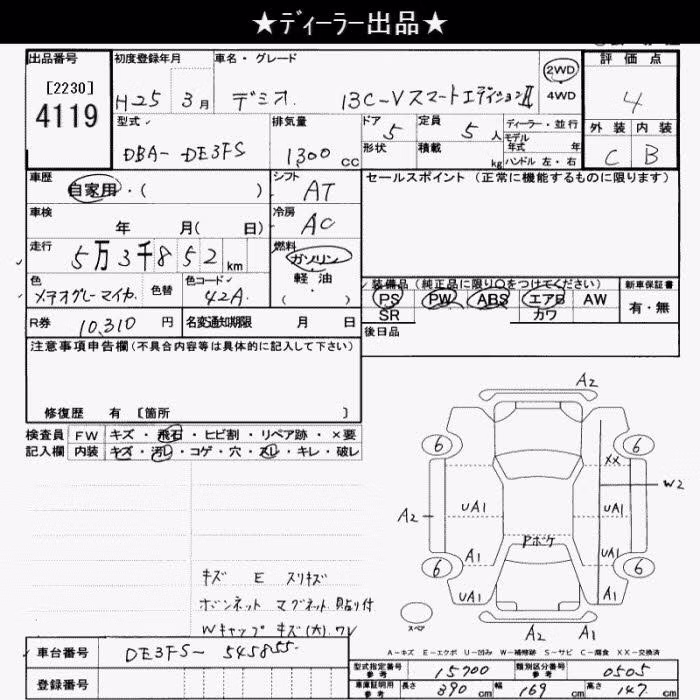 ★ディーラー出品★
出品番号 初度登録年月 車名・グレード 評価点
[2230]
4119
H25 3月 デミオ 13C-Vスマートエディション II 2WD 4WD 4
型式 排気量 ドア 定員 ディーラー・並行 外装 内装
DBA-DE3FS 1,300cc 5 5人 モデル年式 年 C B
形状 積載 kg ハンドル 左・右
車歴 シフト セールスポイント(正常に機能するものに限ります)
自家用・( ) AT
車検 冷房
年 月( 日) AC
走行 燃料
5万3千852km ガソリン・軽油・( )
色 色替 色コード 装備品(純正品に限り○をつけてください) 新車保証書
メテオグレーマイカ 42A PS PW ABS エアB AW 有・無
SR カワ
R券 10,310円 名変通知期限 月 日 後日品
注意事項申告欄(不具合内容等は具体的に記入して下さい)
修復歴 有 [箇所 ]
検査員 FW キズ・飛石・ヒビ割・リペア跡・×要
記入欄 内装 キズ・汚レ・コゲ・穴・スレ・キレ・破レ
A2
6 6
XX
W2
UA1 UA1
A2
Pボケ
A1 UA1
6 6
UA1 A1
スペア
A2 A1
キズ E スリキズ
ボンネット マグネット貼り付
Wキャップ キズ(大).ワレ
A-キズ E-エクボ U-凹み W-補修跡 S-サビ C-腐食 XX-交換済
車台番号 DE3FS-545855
登録番号
型式指定番号 参考 15700 類別区分番号 参考 0505
車庫証明用 参考 長さ 390cm 幅 169cm 高さ 147cm